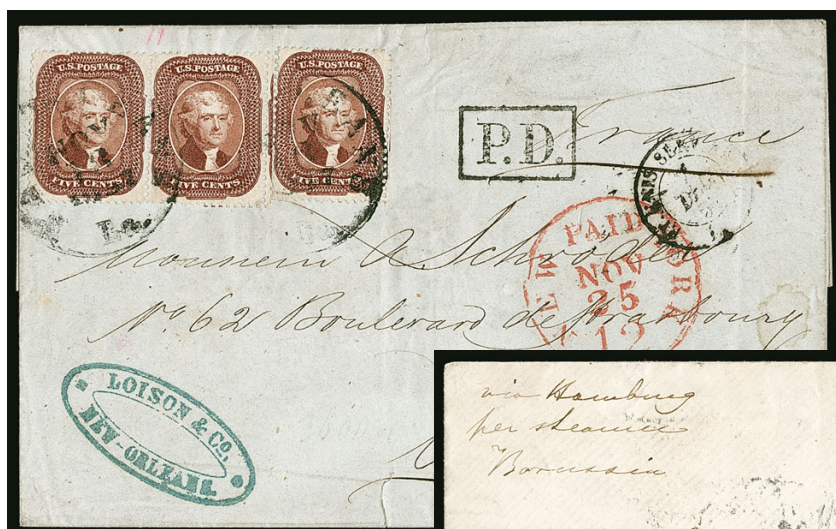 U.S. POSTAGE U.S. POSTAGE U.S. POSTAGE
FIVE CENTS FIVE CENTS FIVE CENTS
NOV
La.
P.D.
France
PAID
NEW YORK
NOV
25
12
Monsieur A Schröder
No 62 Boulevard de Strasbourg
LOISON & CO.
NEW-ORLEANS.
via Hamburg
per steamer
Borussia